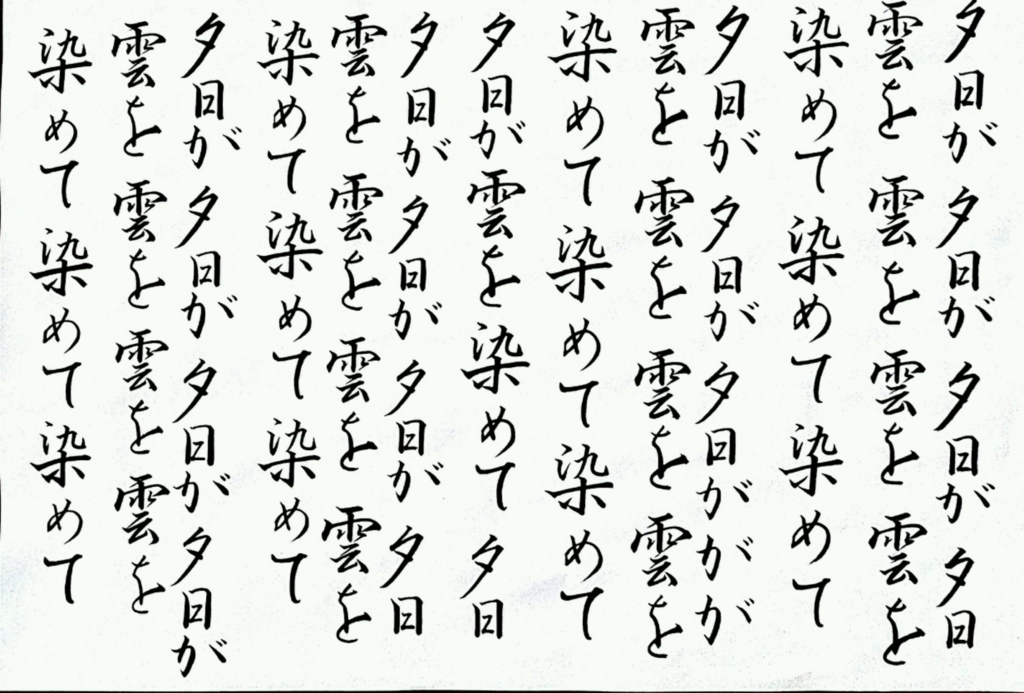 夕日が夕日が夕日が夕日
雲を雲を雲を雲を
染めて染めて染めて
夕日が夕日が夕日ががが
雲を雲を雲を雲を
染めて染めて染めて
夕日が雲を染めて夕日
夕日が夕日が夕日が夕日
雲を雲を雲を雲を
染めて染めて染めて
夕日が夕日が夕日が夕日が
雲を雲を雲を雲を
染めて染めて染めて